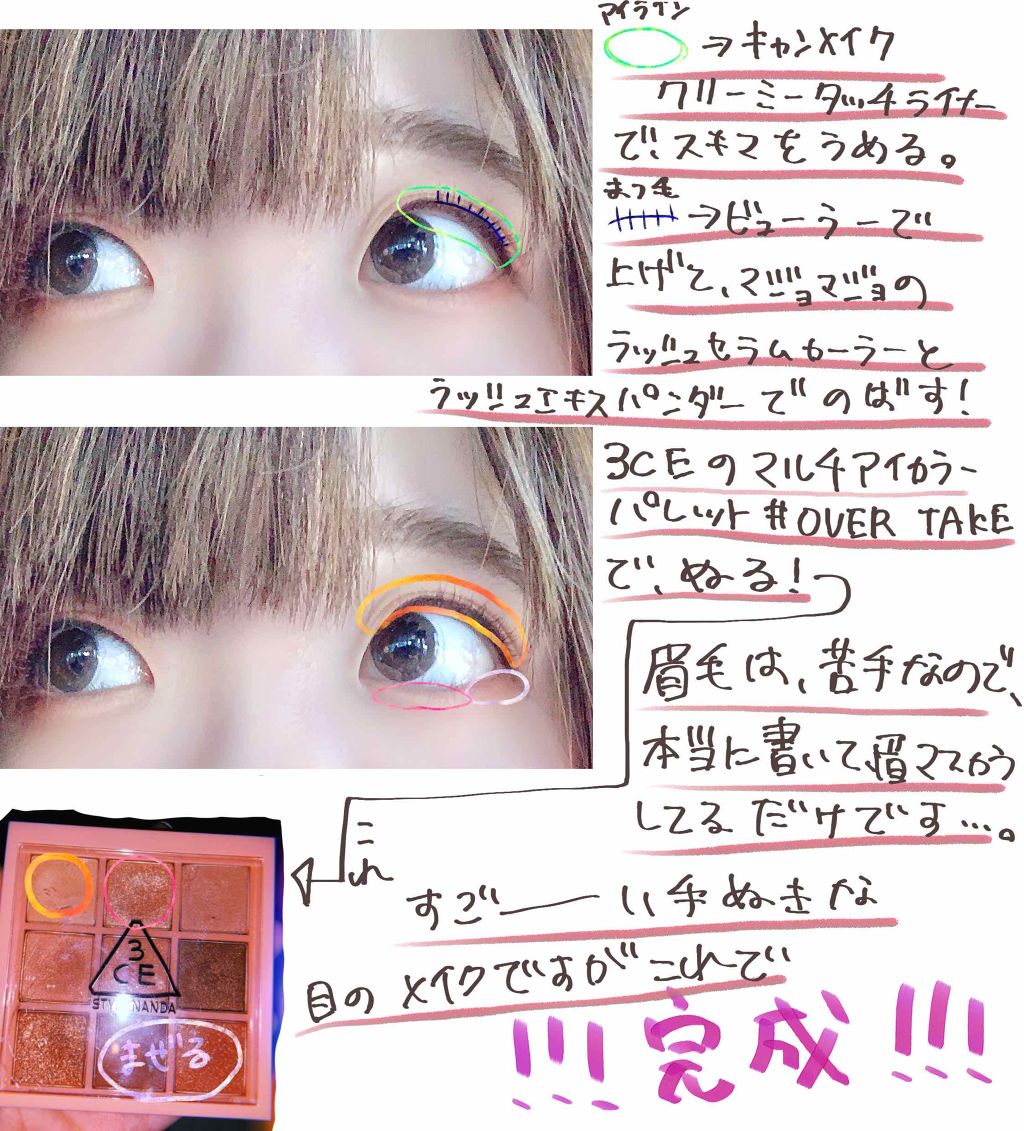 アイライン
→キャンメイク
クリーミータッチライナー
で、スキマをうめる。
まつ毛
→ビューラーで
上げて、マジョマジョの
ラッシュセラムカーラーと
ラッシュエキスパンダーでのばす!
3CEのマルチアイカラー
パレット#OVER TAKE
で、ぬる!
眉毛は、苦手なので、
本当に書いて、眉マスカラ
してるだけです…。
これ
すごーい手ぬきな
目のメイクですがこれで
!!!完成!!!
3
CE
STYLENANDA
まぜる